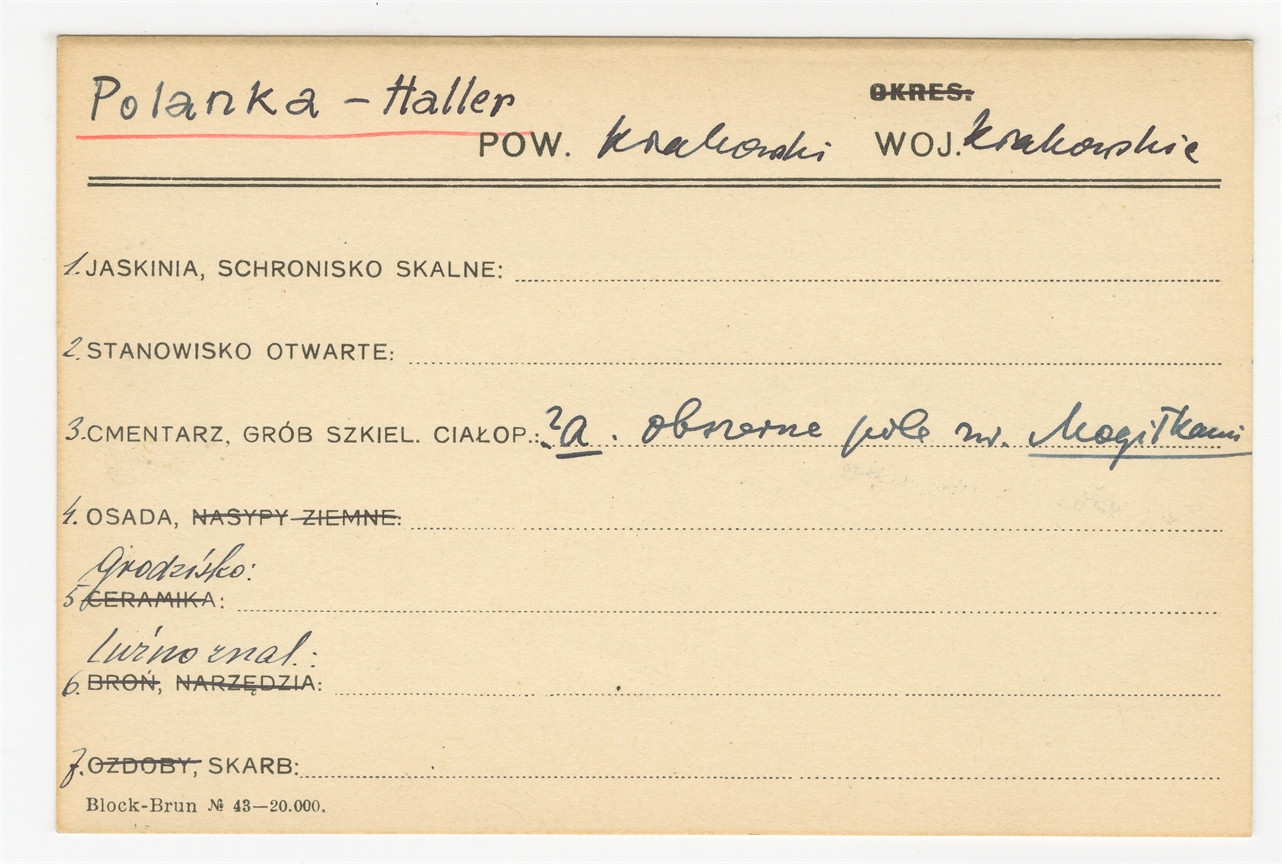 Polanka - Haller
OKRES:
POW. Krakowski WOJ. Krakowskie
1. JASKINIA, SCHRONISKO SKALNE:
2. STANOWISKO OTWARTE:
3. CMENTARZ, GRÓB SZKIEL. CIAŁOP.: ?a. obszerne pole zw. Mogiłkami
4. OSADA, NASYPY ZIEMNE:
Grodzisko:
5 CERAMIKA:
Luźno znal.:
6. BROŃ, NARZĘDZIA:
7. OZDOBY, SKARB:
Block-Brun № 43—20.000.